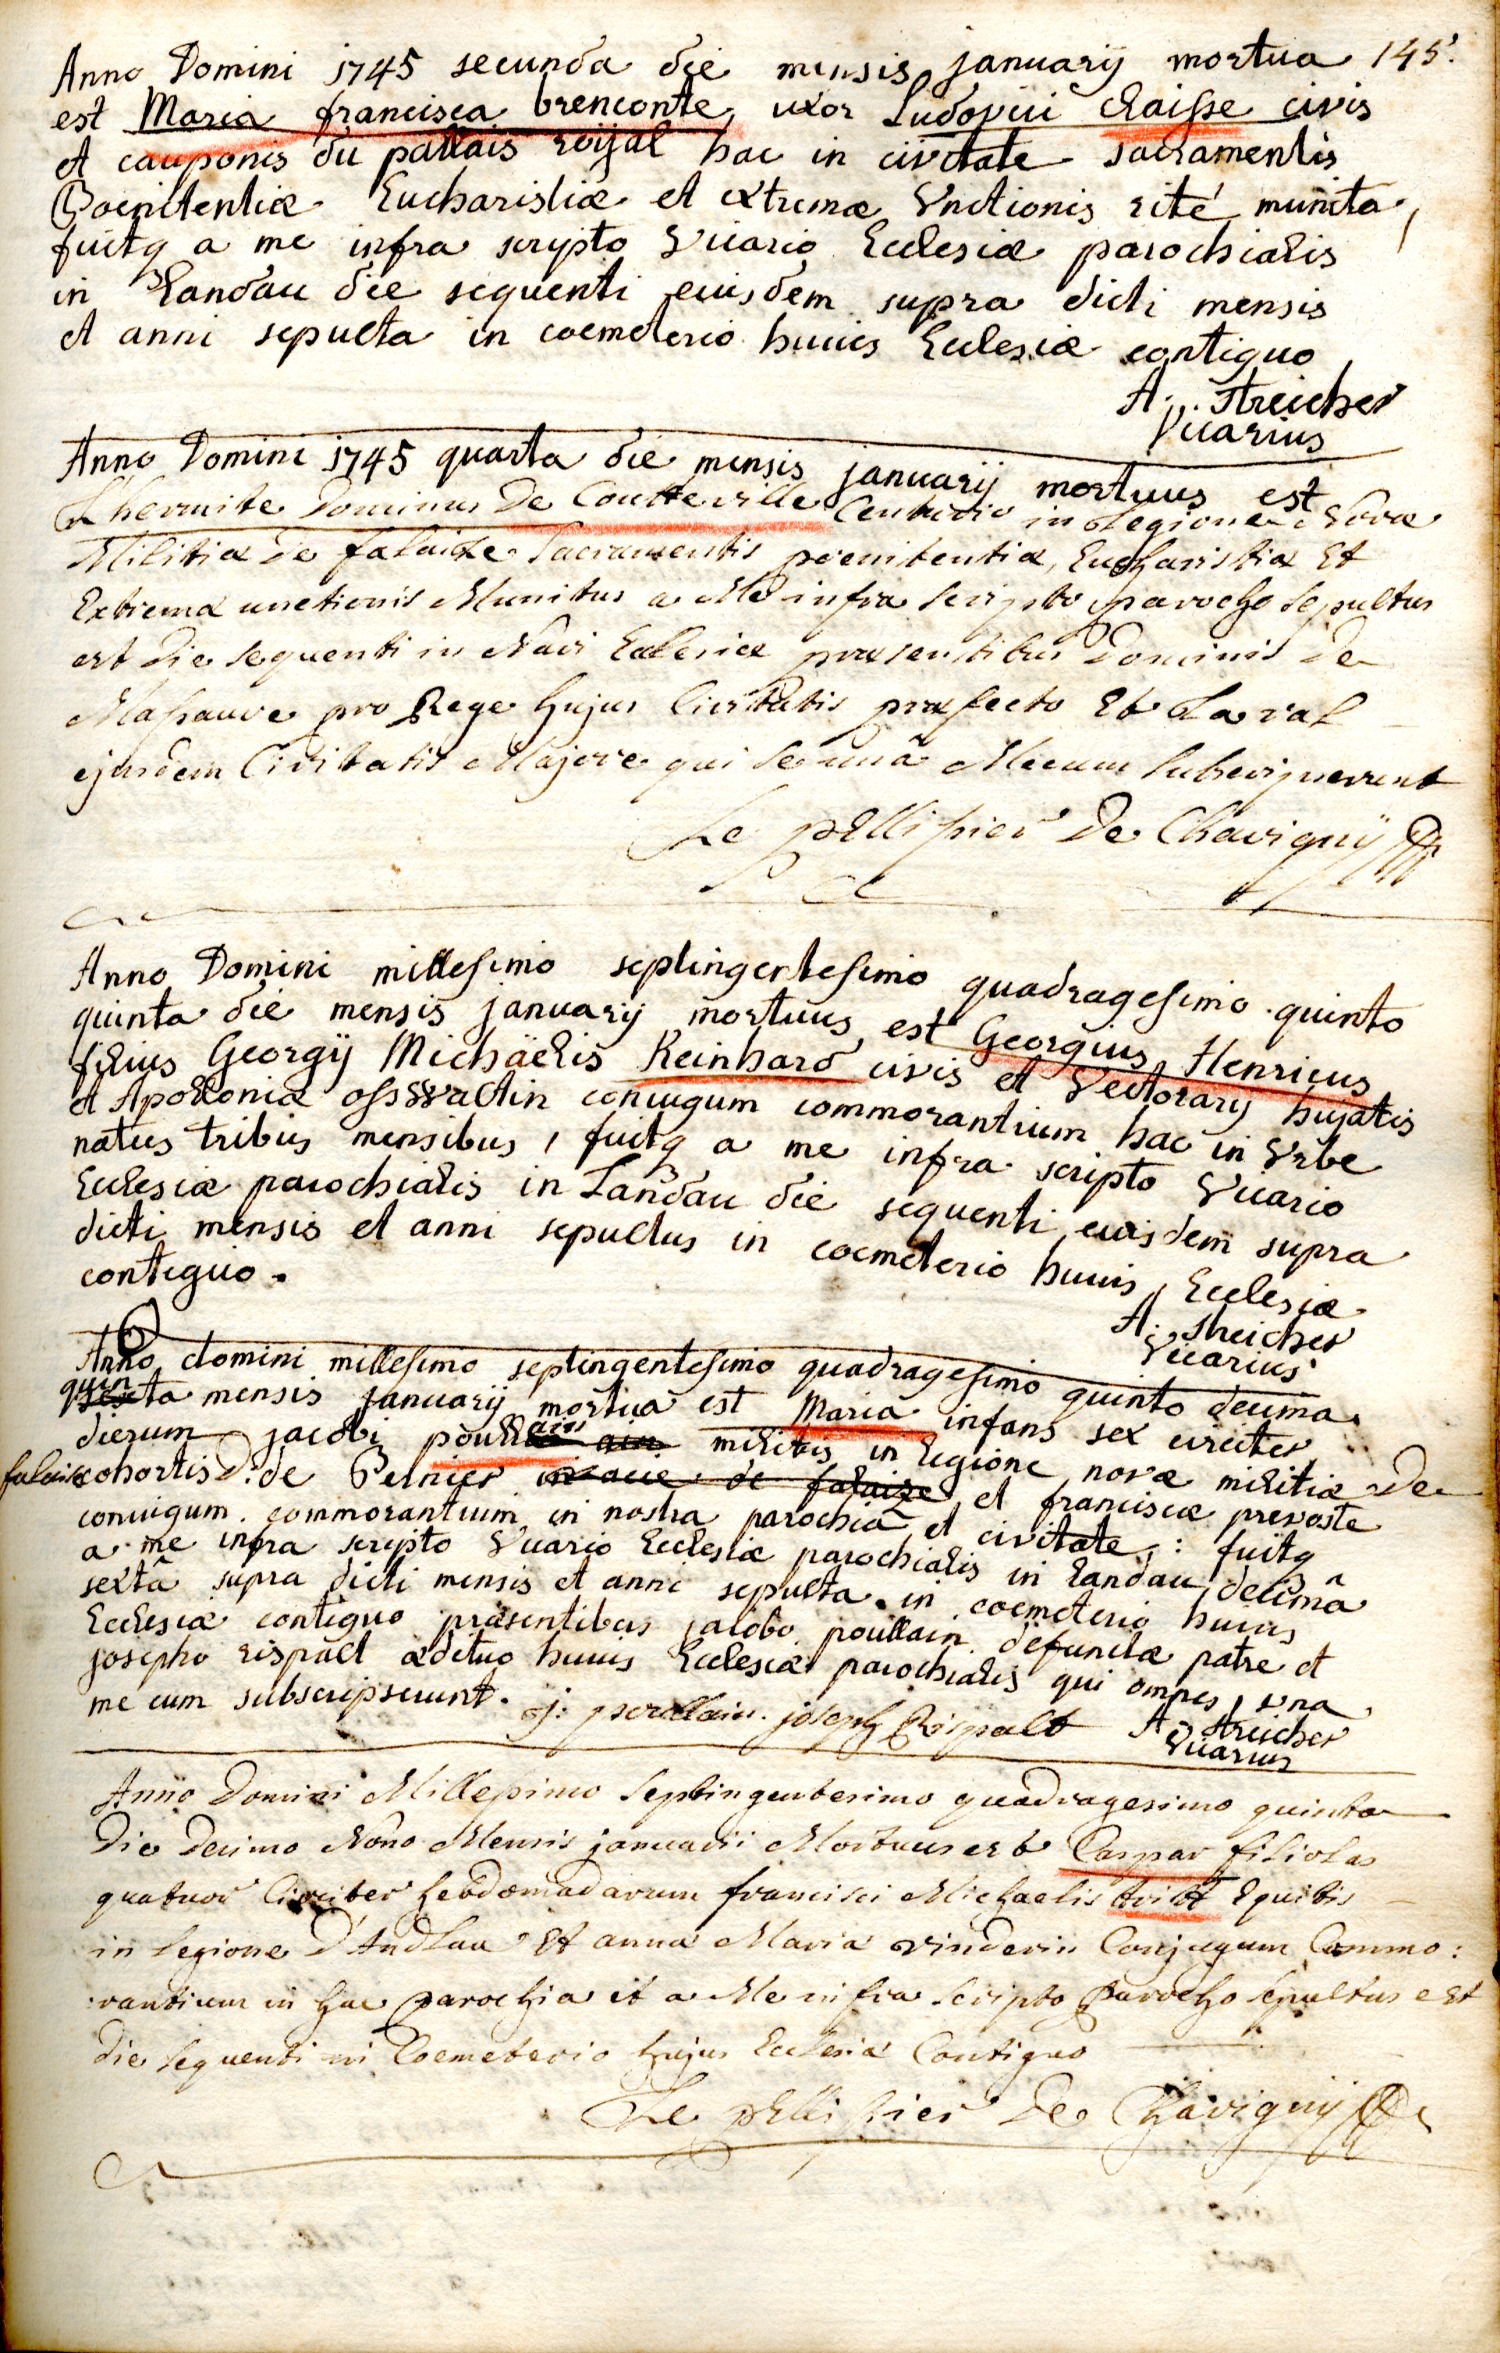 Anno Domini 1745 secunda die mensis januarij mortua 145.
est Maria francisca brenconte, uxor Ludovici Claisse civis
et cauponis du pallais roijal hac in civitate sacramentis
Poenitentiæ Eucharistiæ et extremæ Vnctionis rité munita,
fuitq a me infra scripto Vicario Ecclesiæ parochialis
in Landau die sequenti eiusdem supra dicti mensis
et anni sepulta in coemeterio huius Ecclesiæ contiguo
A. Streicher
Vicarius
Anno Domini 1745 quarta die mensis januarij mortuus est
Lhermite Dominus De Coutteville Centurio in Legione Novæ
Militiæ De falaise Sacramentis poenitentiæ, Eucharistiæ Et
Extremæ unctionis Munitus a Me infra scripto parocho sepultus
est die sequenti in Navi Ecclesiæ præsentibus Dominis De
Massauve pro Rege hujus Civitatis præfecto Et Laval
ejusdem Civitatis Majore qui se unâ Mecum subscripserunt
Le pellissier De Chavignÿ
Anno Domini millesimo septingentesimo quadragesimo quinto
quinta die mensis januarij mortuus est Georgius Henricus
filius Georgij Michäelis Reinhard civis et Vectorarij hujatis
et Apolloniæ ossWaltin coniugum commorantium hac in Vrbe
natus tribus mensibus, fuitq a me infra scripto Vicario
Ecclesiæ parochialis in Landau die sequenti eiusdem supra
dicti mensis et anni sepultus in coemeterio huius Ecclesiæ
contiguo.
A. Streicher
Vicarius
Anno domini millesimo septingentesimo quadragesimo quinto decima
quinta mensis januarij mortua est Maria infans sex circiter
dierum jacobi poullain militis in legione novæ militiæ De
falaise cohortis D. de Pernier in acie de falaize et franciscæ prevoste
coniugum commorantium in nostra parochiâ et civitate: fuitq
a me infra scripto Vicario Ecclesiæ parochialis in landau decimâ
sextâ supra dicti mensis et anni sepulta in coemeterio huius
Ecclesiæ contiguo præsentibus jacobo poullain defunctæ patre et
josepho rispalt ædituo huius Ecclesiæ parochialis qui omnes una
me cum subscripserunt. j: poullain. joseph Rispalt A. Streicher
Vicarius
Anno Domini Millesimo septingentesimo quadragesimo quinto
Die Decimo Nono Mensis januarii Mortuus est Caspar filiolus
quatuor Circiter hebdomadarum francisci Michaelis Equitis
in Legione D'Andlau Et anna Maria vinderin Conjugum Commo:
rantium in hac parochia et a Me infra scripto parocho sepultus est
die sequenti in Coemeterio hujus Ecclesiæ Contiguo
Le pellissier De Chavignij